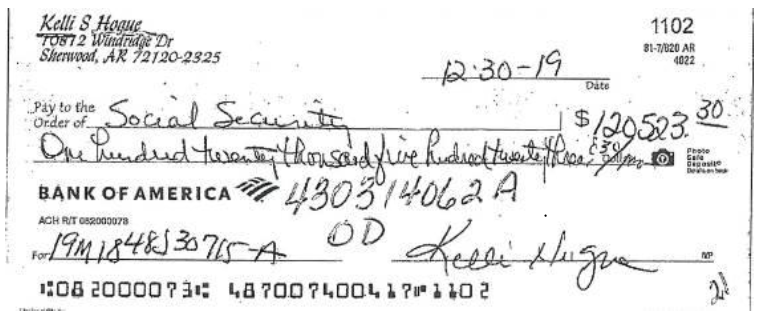 Kelli S Hogue
10812 Windridge Dr
Sherwood, AR 72120-2325
1102
81-7/820 AR
4022
12-30-19
Date
Pay to the
Order of Social Security $ 120,523.30
One hundred twenty thousand five hundred twenty three &30/100
Photo
Safe
Deposit®
Details on back
BANK OF AMERICA
430314062A
ACH R/T 082000073
OD
For 19M1848J30715-A Kelli Hogue MP
⑆082000073⑆ 487007400417⑈1102